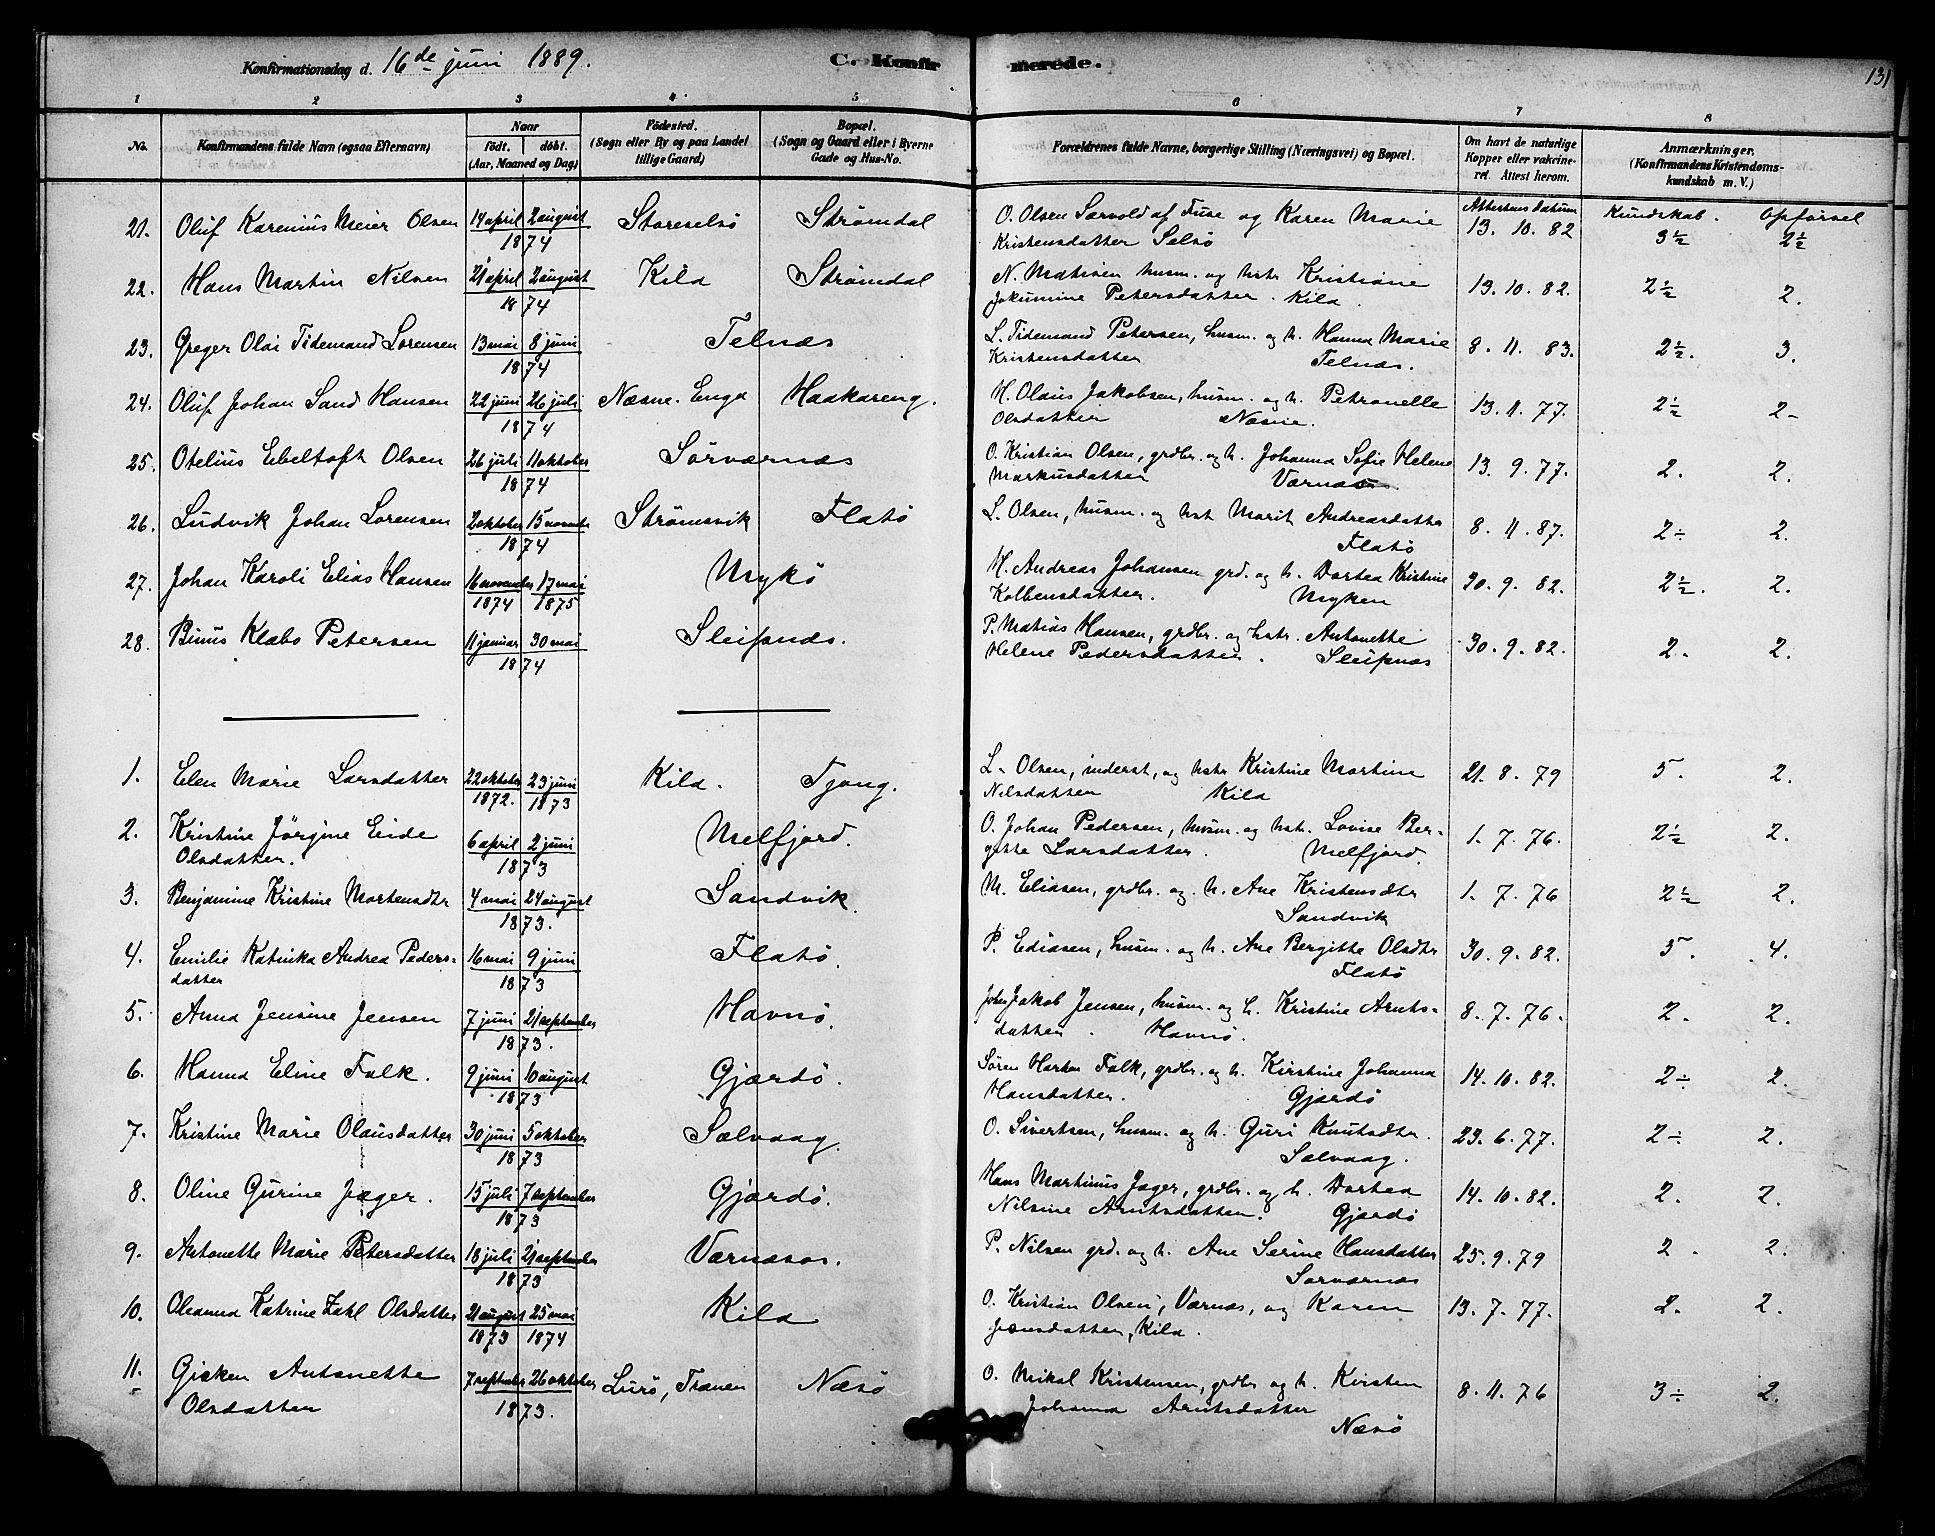 Konfirmationsdag d. 16de juni 1889.
C. Konfir merede.
131
1 2 3 4 5 6 7 8
No. Konfirmandens fulde Navn (ogsaa Efternavn)
Naar
født. døbt.
(Aar, Maaned og Dag)
Fødested.
(Sogn eller By og paa Landet
tillige Gaard)
Bopæl.
(Sogn og Gaard eller i Byerne
Gade og Hus-No.
Forældrenes fulde Navne, borgerlige Stilling (Næringsvei) og Bopæl.
Om havt de naturlige
Kopper eller vakcine-
ret. Attest herom.
Anmærkninger,
(Konfirmandens Kristendoms-
kundskab m. V.)
Attestens datum Kundskab. Opførsel
21. Oluf Karenius Meier Olsen 14 april 2 august Storeselsø Strømdal O. Olsen Sørvold af Fuse og Karen Marie 13. 10. 82 3½ 2½
1874 Kristensdatter Selsø
22. Hans Martin Nilsen 21 april 2 august Kila Strømdal N. Matisen husm. og hstr Kristiane 13. 10. 82. 2½ 2.
1874 Jokumine Petersdatter. Kila.
23. Greger Olai Tidemand Lorensen 13 mai 8 juni Telnæs L. Tidemand Petersen, husm. og h. Hanna Marie 8. 11. 83. 2½. 3.
1874 Kristensdatter Telnæs.
24. Oluf Johan Sand Hansen 22 juni 26 juli Næsne. Enga Haakareng. H. Olaus Jakobsen, husm. og h. Petronelle 13. 11. 77. 2½ 2-
1874 Olsdatter Næsne.
25. Otelius Ebeltoft Olsen 26 juli 11 oktober Sørværnæs O. Kristian Olsen, grdbr. og h. Johanna Sofie Helene 13. 9. 77. 2. 2.
1874 Markusdatter Værnæs.
26. Ludvik Johan Lorensen 2 oktober 15 novembr Strømsvik Flatø L. Olsen, husm. og hst Marit Andreasdatter 8. 11. 87. 2÷ 2.
1874 Flatø
27. Johan Karoli Elias Hansen 16 november 17 mai Mykø H. Andreas Johansen grd. og h. Dortea Kristine 30. 9. 82. 2½. 2.
1874 1875 Kolbensdatter. Myken
28. Binus Klabo Petersen 11 januar 30 mai Sleipnæs. P. Matias Hansen, grdbr. og hstr. Antonette 30. 9. 82. 2. 2.
1874 Helene Pedersdatter. Sleipnæs
1. Elen Marie Larsdatter 22 oktober 23 juni Kila. Tjong. L. Olsen, inderst, og hstr Kristine Martine 21. 8. 79 5. 2.
1872. 1873 Nilsdatter Kila
2. Kristine Jørgine Eide 6 april 2 juni Melfjord. O. Johan Pedersen, husm. og hstr. Lovise Ber- 1. 7. 76. 2½ 2.
Olsdatter. 1873 gitte Larsdatter. Melfjord.
3. Benjamine Kristine Mortensdtr 4 mai 24 august Sandvik. M. Eliasen, grdbr. og. h. Ane Kristensdtr 1. 7. 76 2½ 2.
1873. Sandvik
4. Emilie Katinka Andrea Peders- 16 mai 9 juni Flatø. P. Ediasen, husm. og h. Ane Bergitte Olsdtr 30. 9. 82. 5. 4.
datter 1873 Flatø
5. Anna Jensine Jensen 7 juni 21 september Havnø. Johan Jakob Jensen, husm. og h. Kristine Arnts- 8. 7. 76. 2. 2.
1873. datter. Havnø.
6. Hanna Eline Falk. 9 juni 10 august Gjærdø. Søren Falk, grdbr. og h. Kirstine Johanna 14. 10. 82. 2÷ 2.
1873 Hansdatter. Gjærdø
7. Kristine Marie Olausdatter 30 juni 5 oktober Sælvaag. O. Sivertsen, husm. og h. Guri Knutsdtr. 23. 6. 77. 2÷ 2.
1873 Sælvaag.
8. Oline Gurine Jæger. 15 juli 7 september Gjærdø. Hans Martinus Jæger, grdbr. og h. Dortea 14. 10. 82. 2. 2.
1873 Nilsine Arntsdatter. Gjærdø
9. Antonette Marie Petersdatter 18 juli 21 september Værnæsøs. P. Nilsen grd. og h. Ane Serine Hansdatter 25. 9. 79 2. 2.
1873 Sørværnæs
10. Oleanna Katrine Zahl Olsdatter 21 august 25 mai Kila O. Kristian Olsen, Værnæs, og Karen 13. 7. 77. 2. 2.
1873 1874 Jænsdatter, Kila.
11. Gisken Antonette 7 septbr 26 oktober Lurø, Tranen Næsø O. Mikal Kristensen, grdbr og h. Kirsten 8. 11. 76 3÷ 2.
Olsdatter 1873. Johanna Arntsdatter
Næsø